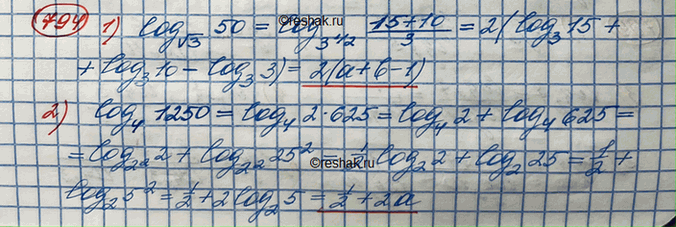 794 1) log_{√3} 50 = log_{3^{1/2}} \frac{15+10}{3} = 2(log_3 15 +
+ log_3 10 - log_3 3) = 2(a+b-1)
2) log_4 1250 = log_4 2·625 = log_4 2 + log_4 625 =
= log_{2^2} 2 + log_{2^2} 25^2 = \frac{1}{2} log_2 2 + log_2 25 = \frac{1}{2} +
log_2 5^2 = \frac{1}{2} + 2 log_2 5 = \frac{1}{2} + 2a
©reshak.ru
©reshak.ru